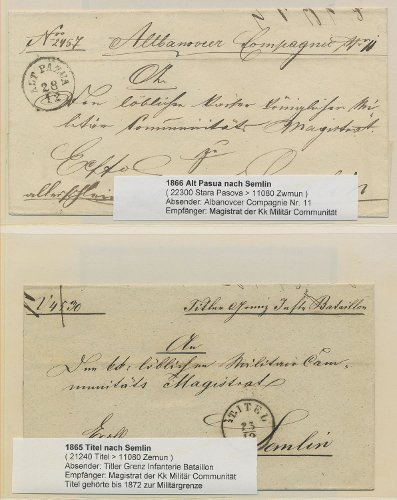 Nro 2457 Altbanovcer Compagnie Nr 11
ALT PASUA
28
12
An
Den löblichen kaiser königlicher Mi-
litär Communität, Magistrat
zu
Exffo
1866 Alt Pasua nach Semlin
( 22300 Stara Pasova > 11080 Zwmun )
Absender: Albanovcer Compagnie Nr. 11
Empfänger: Magistrat der Kk Militär Communität
N 4530 Titler Grenz Inftr Bataillon
An
Den kk: löblichen Militair Com-
munitäts Magistrat
TEITEL
23
12
Semlin
1865 Titel nach Semlin
( 21240 Titel > 11080 Zemun )
Absender: Titler Grenz Infanterie Bataillon
Empfänger: Magistrat der Kk Militär Communität
Titel gehörte bis 1872 zur Militärgrenze